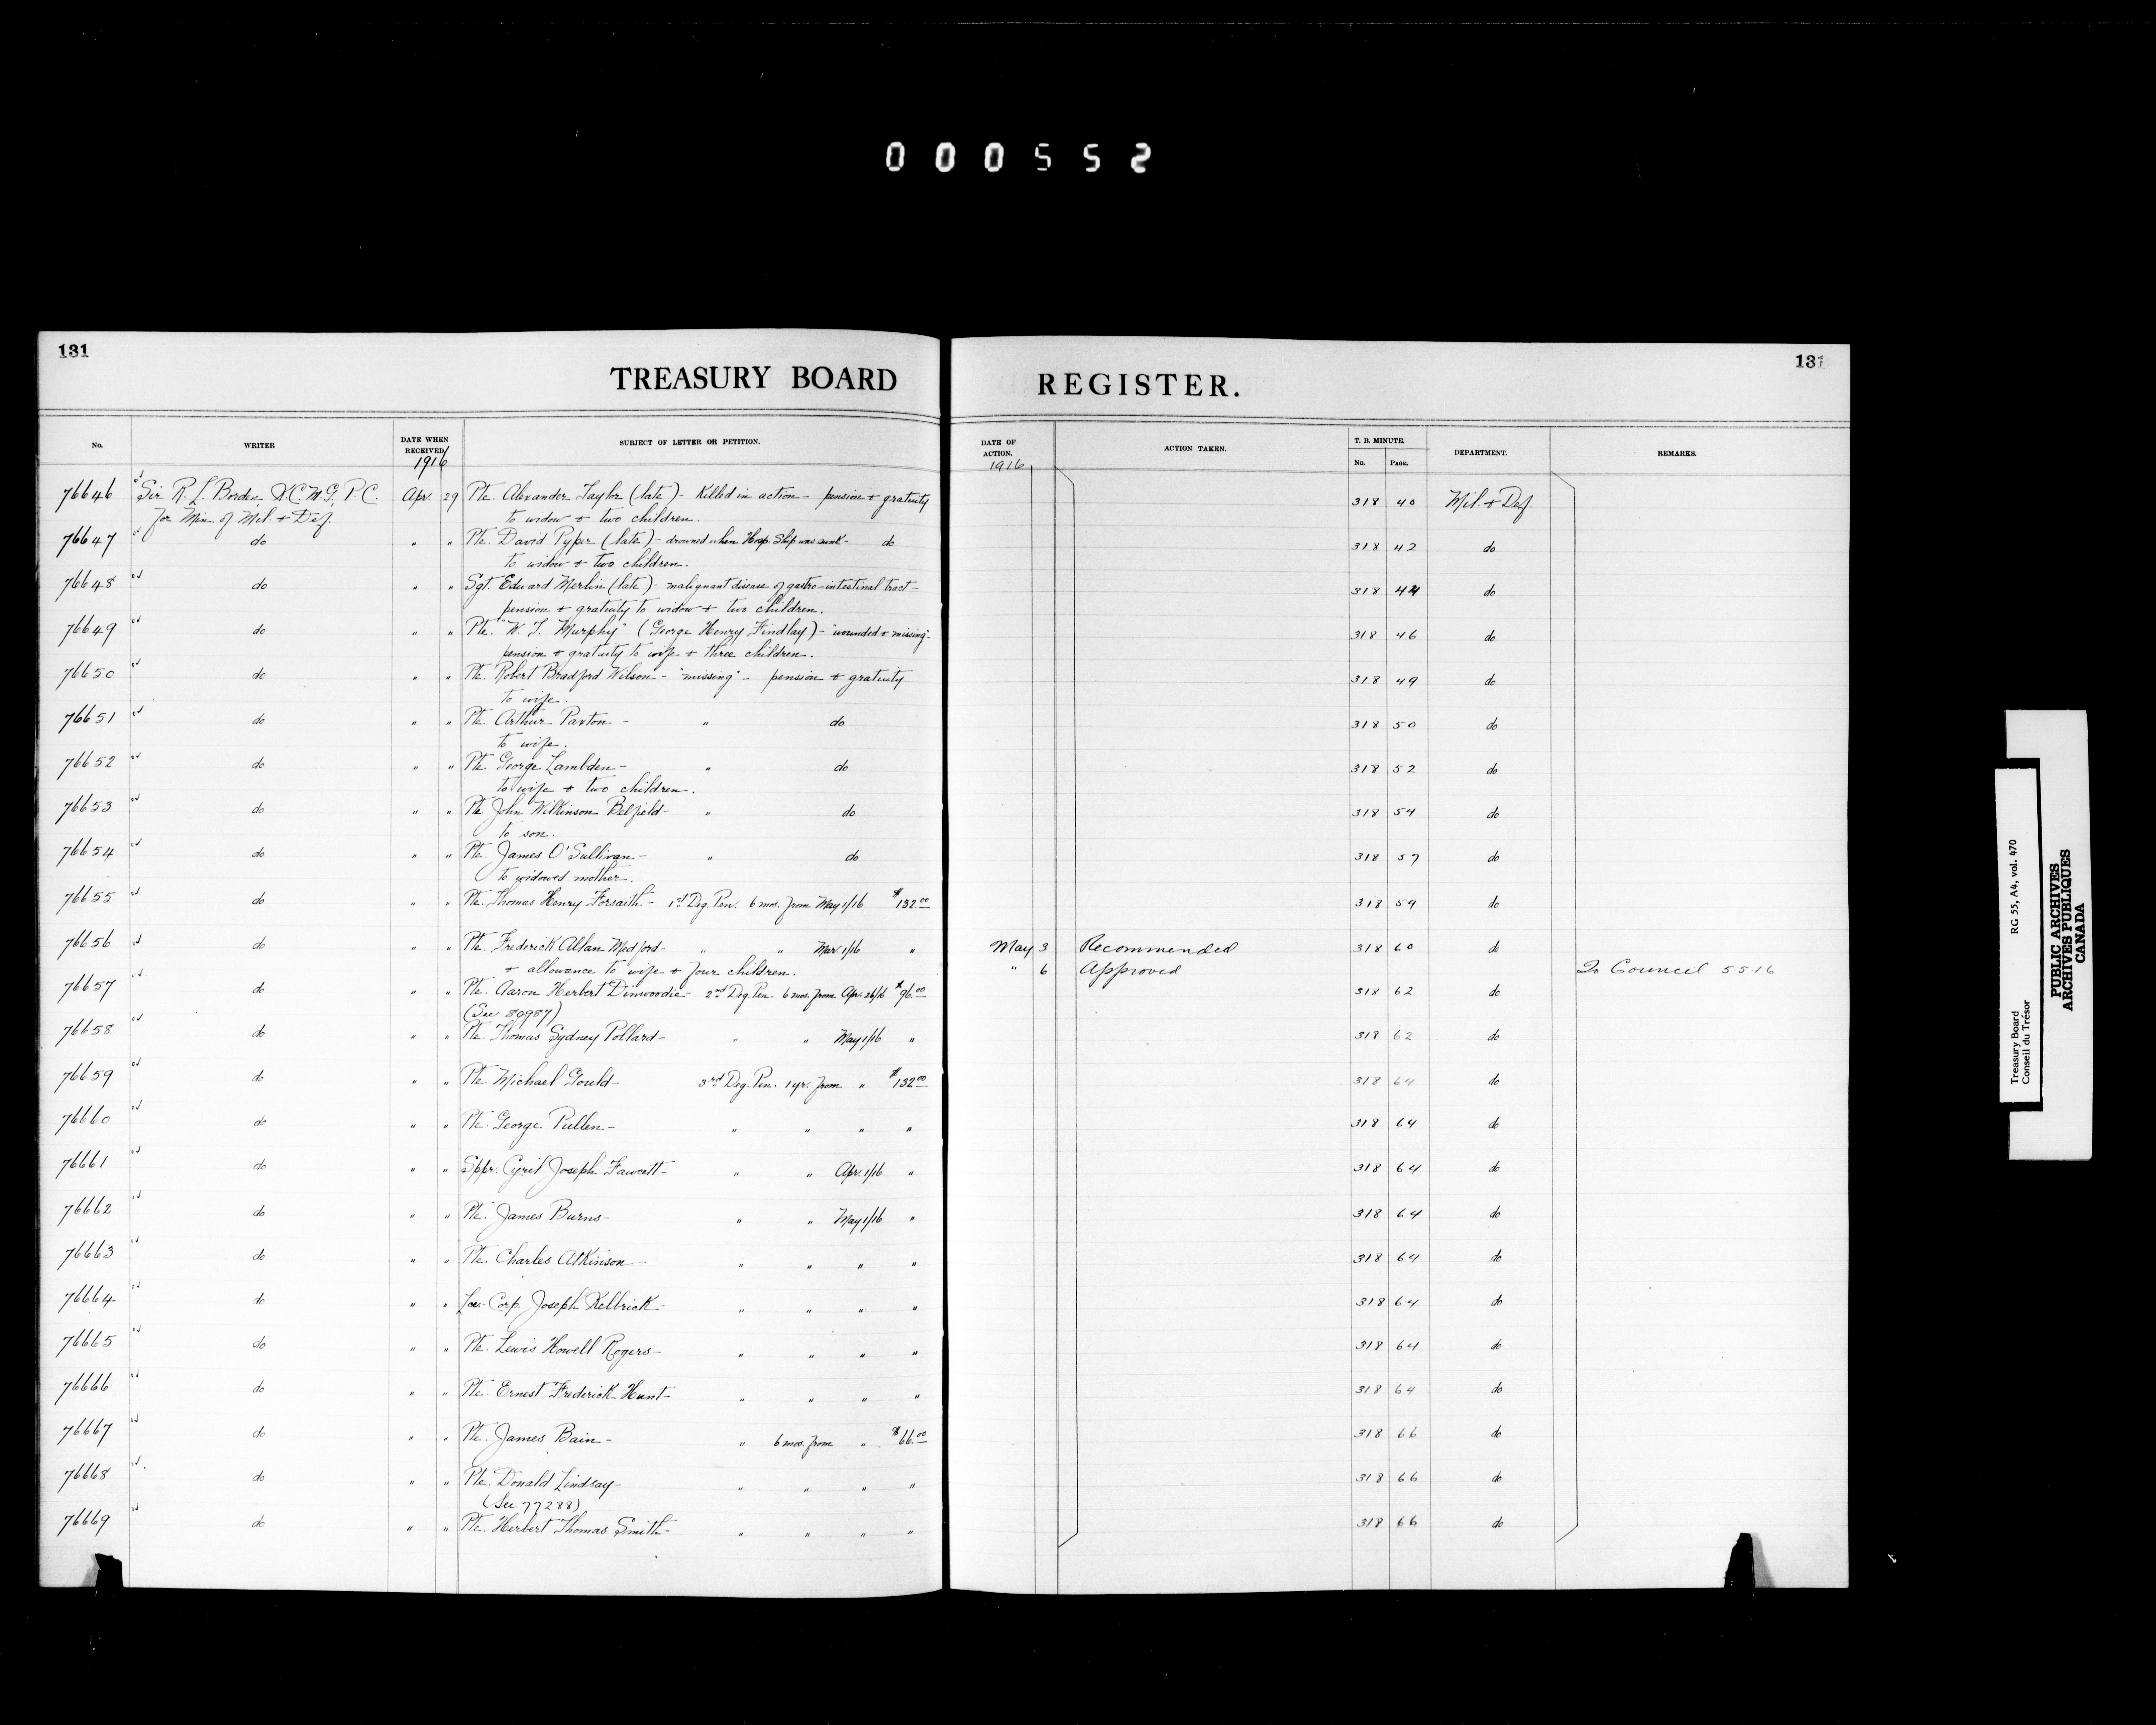 000552
131
TREASURY BOARD
No. WRITER DATE WHEN RECEIVED SUBJECT OF LETTER OR PETITION.
1916
76646 Sir R. L. Borden K.C.M.G. P.C. Apr. 29 Pte. Alexander Taylor (late) - Killed in action - pension & gratuity
for Min. of Mil. & Def. to widow & two children.
76647 do " " Pte. David Pyper (late) - drowned when Hosp. Ship was sunk - do
to widow & two children.
76648 do " " Sgt. Edward Merlin (late) - malignant disease of gastro-intestinal tract -
pension & gratuity to widow & two children.
76649 do " " Pte. "W. J. Murphy" (George Henry Findlay) - "wounded & missing" -
pension & gratuity to wife & three children.
76650 do " " Pte. Robert Bradford Wilson - "missing" - pension & gratuity
to wife.
76651 do " " Pte. Arthur Paxton - " do
to wife.
76652 do " " Pte. George Lambden - " do
to wife & two children.
76653 do " " Pte. John Wilkinson Belfield - " do
to son.
76654 do " " Pte. James O'Sullivan - " do
to widowed mother.
76655 do " " Pte. Thomas Henry Forsaith - 1st Deg. Pen. 6 mos. from May 1/16 $132.00
76656 do " " Pte. Frederick Allan Medford - " " Mar. 1/16 "
& allowance to wife & four children.
76657 do " " Pte. Aaron Herbert Dinwoodie - 2nd Deg. Pen. 6 mos. from Apr. 26/16 $96.00
(See 80987)
76658 do " " Pte. Thomas Sydney Pollard - " " May 1/16 "
76659 do " " Pte. Michael Gould - 3rd Deg. Pen. 1 yr. from " $132.00
76660 do " " Pte. George Pullen - " " " "
76661 do " " Sppr. Cyril Joseph Fawcett - " " Apr. 1/16 "
76662 do " " Pte. James Burns - " " May 1/16 "
76663 do " " Pte. Charles Atkinson - " " " "
76664 do " " Lce-Corp. Joseph Kelbrick - " " " "
76665 do " " Pte. Lewis Howell Rogers - " " " "
76666 do " " Pte. Ernest Frederick Hunt - " " " "
76667 do " " Pte. James Bain - " 6 mos. from " $66.00
76668 do " " Pte. Donald Lindsay - " " " "
(See 77288)
76669 do " " Pte. Herbert Thomas Smith - " " " "
131
REGISTER.
DATE OF ACTION. ACTION TAKEN. T. B. MINUTE. No. PAGE. DEPARTMENT. REMARKS.
1916
318 40 Mil. & Def.
318 42 do
318 44 do
318 46 do
318 49 do
318 50 do
318 52 do
318 54 do
318 57 do
318 59 do
May 3 Recommended 318 60 do
" 6 Approved To Council 5516
318 62 do
318 62 do
318 64 do
318 64 do
318 64 do
318 64 do
318 64 do
318 64 do
318 64 do
318 64 do
318 66 do
318 66 do
318 66 do
Treasury Board RG 55, A4, vol. 470
Conseil du Trésor
PUBLIC ARCHIVES
ARCHIVES PUBLIQUES
CANADA